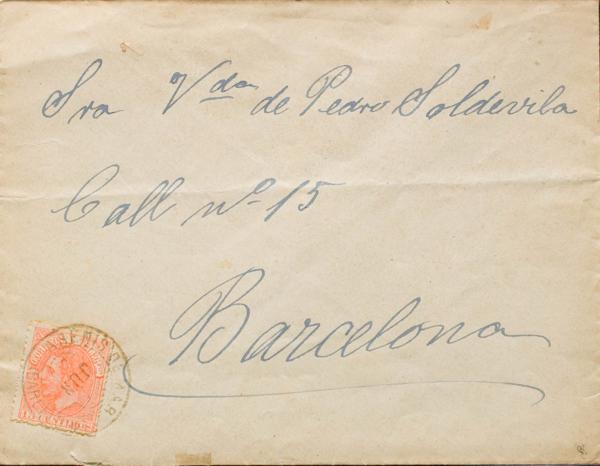 Sra Vda de Pedro Soldevila
Call nº 15
Barcelona
15 CENTIMOS